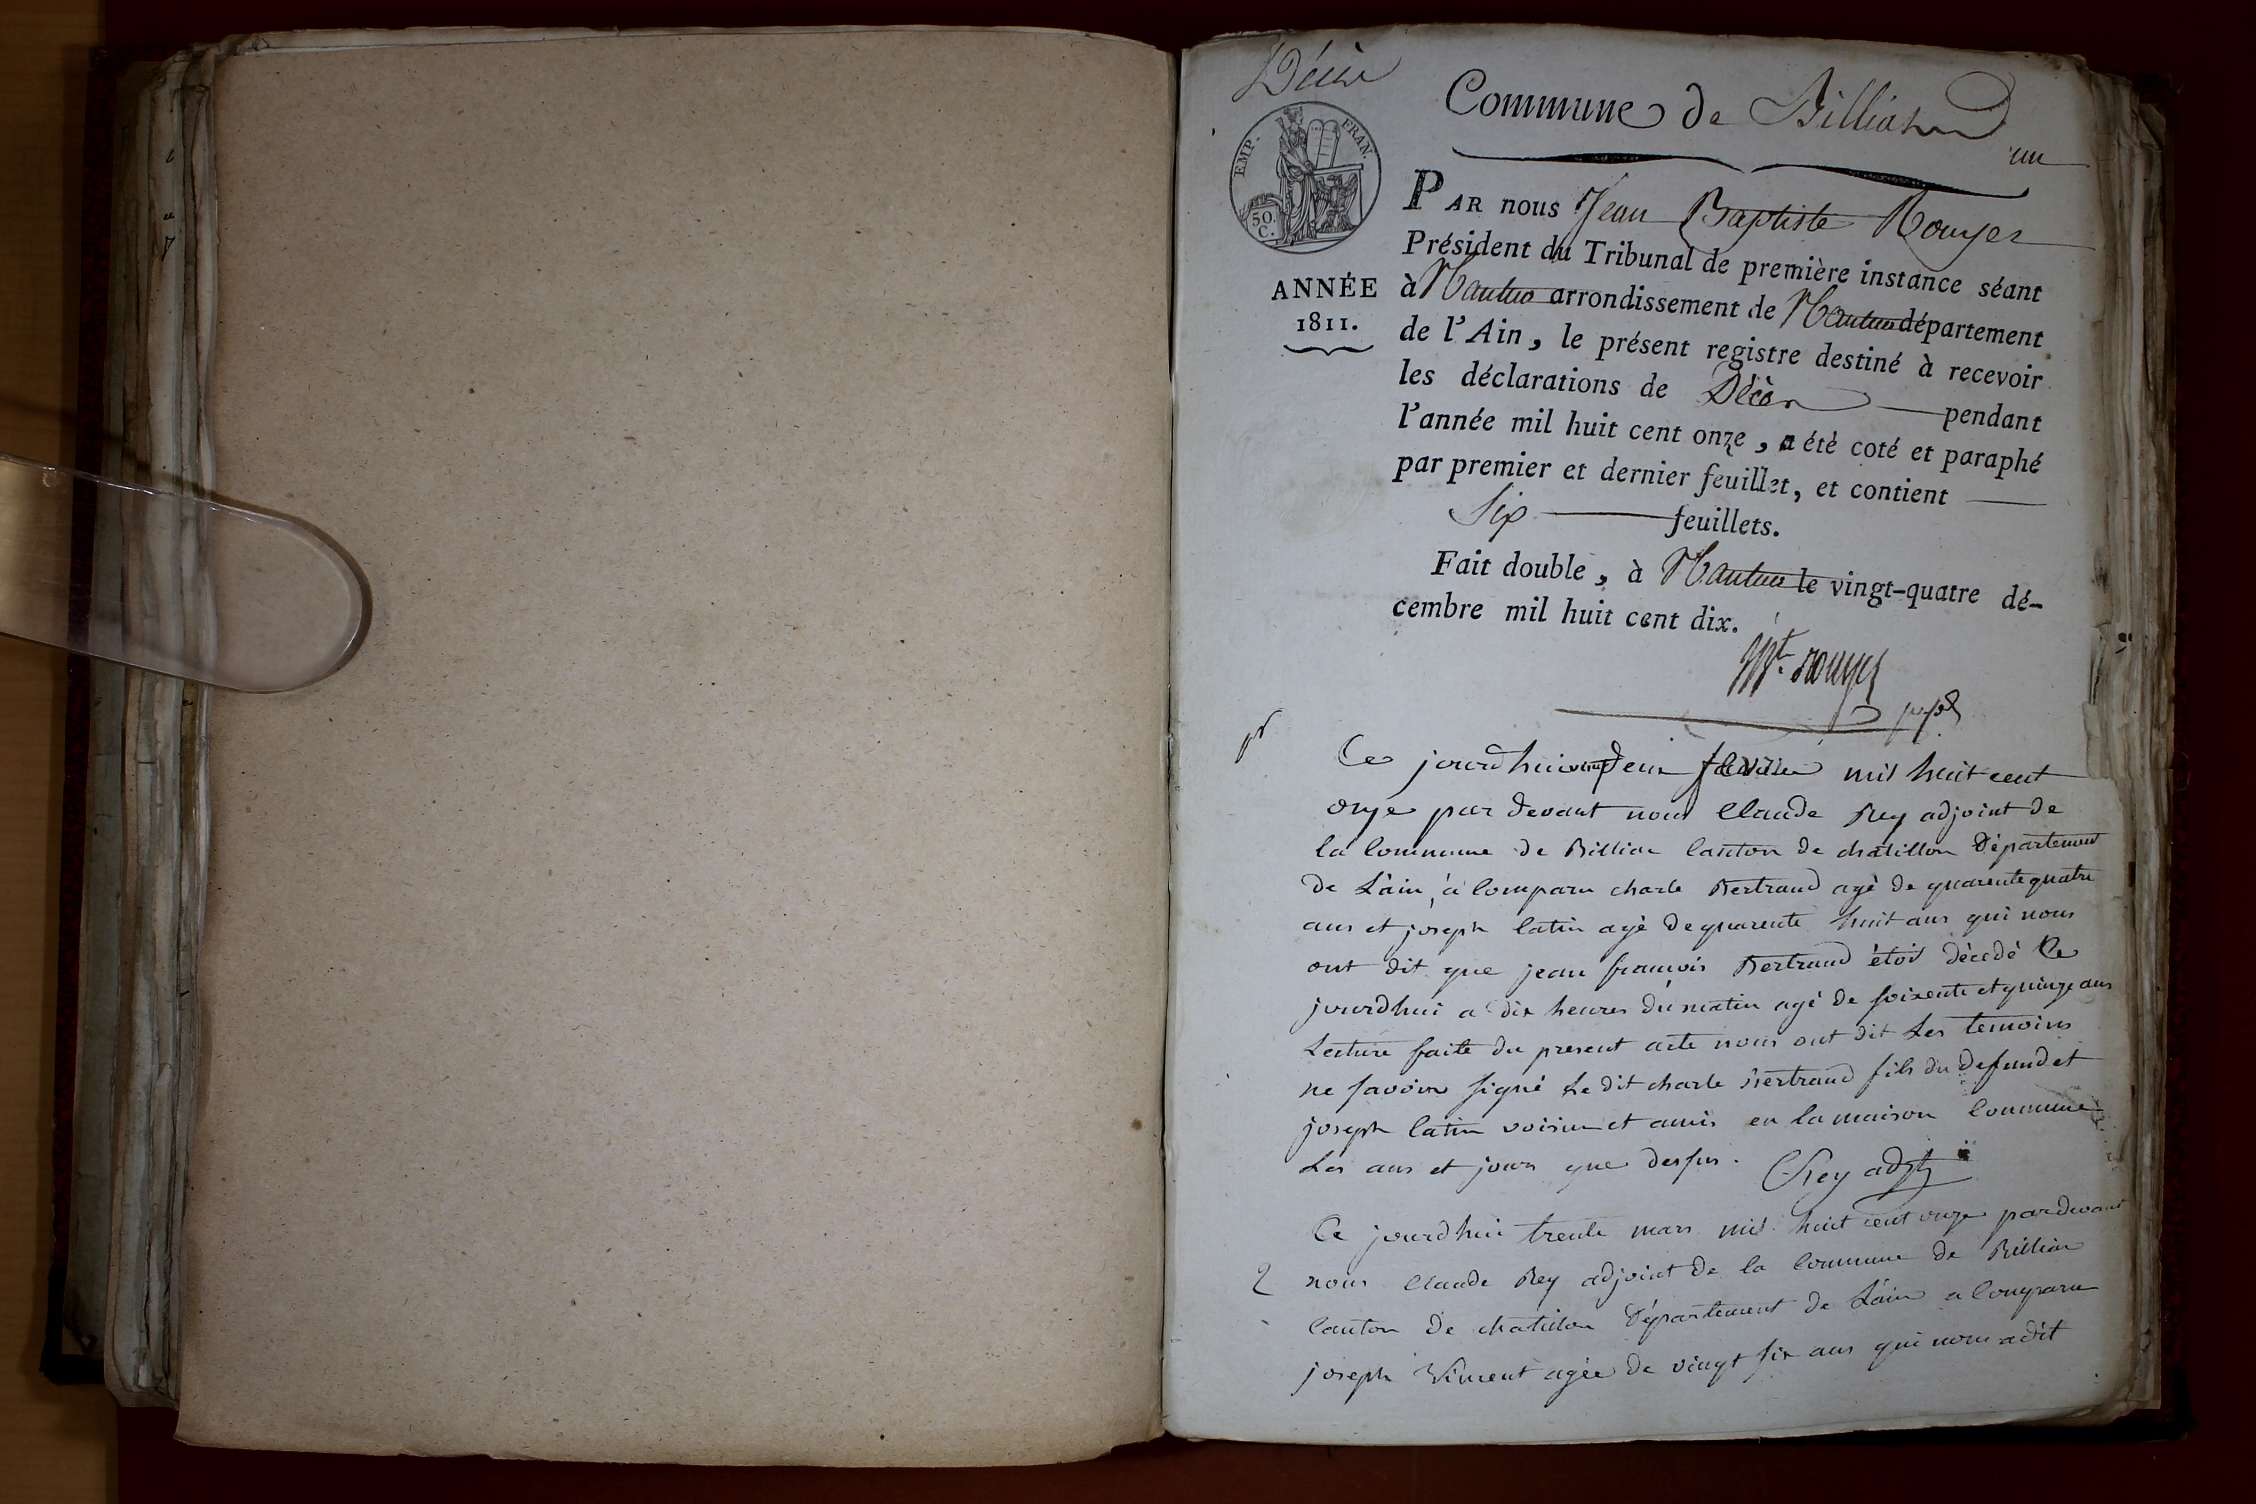 Décès
Commune de Billiat
un
EMP. FRAN.
50.
C.
ANNÉE
1811.
PAR nous Jean Baptiste Rouyer
Président du Tribunal de première instance séant
à Nantua arrondissement de Nantua département
de l'Ain, le présent registre destiné à recevoir
les déclarations de Décès pendant
l'année mil huit cent onze, a été coté et paraphé
par premier et dernier feuillet, et contient
Six feuillets.
Fait double, à Nantua le vingt-quatre dé-
cembre mil huit cent dix.
rouyer
Ce jourdhui février mil huit cent
onze par devant nous Claude Rey adjoint de
la Commune de Billia Canton de chatillon Département
de Lain, a Comparu charle Bertrand agè de quarente quatre
ans et joseph latin agè de quarente huit ans qui nous
ont dit que jean francois Bertrand étoit décédé Ce
jourdhui a dix heures du matin agé de soixente et quinze ans
Lecture faite du present acte nous ont dit Les temoins
ne savoir signé Le dit charle Bertrand fils du defund et
joseph latin voisin et amis en la maison Commune
Les ans et jours que dessus. C Rey adjt
Ce jourdhui trente mars mil huit cent onze pardevant
2 nous Claude Rey adjoint de la Commune de Billia
Canton de chatillon Département de Lain a Comparu
joseph Vincent agée de vingt six ans qui nous a dit